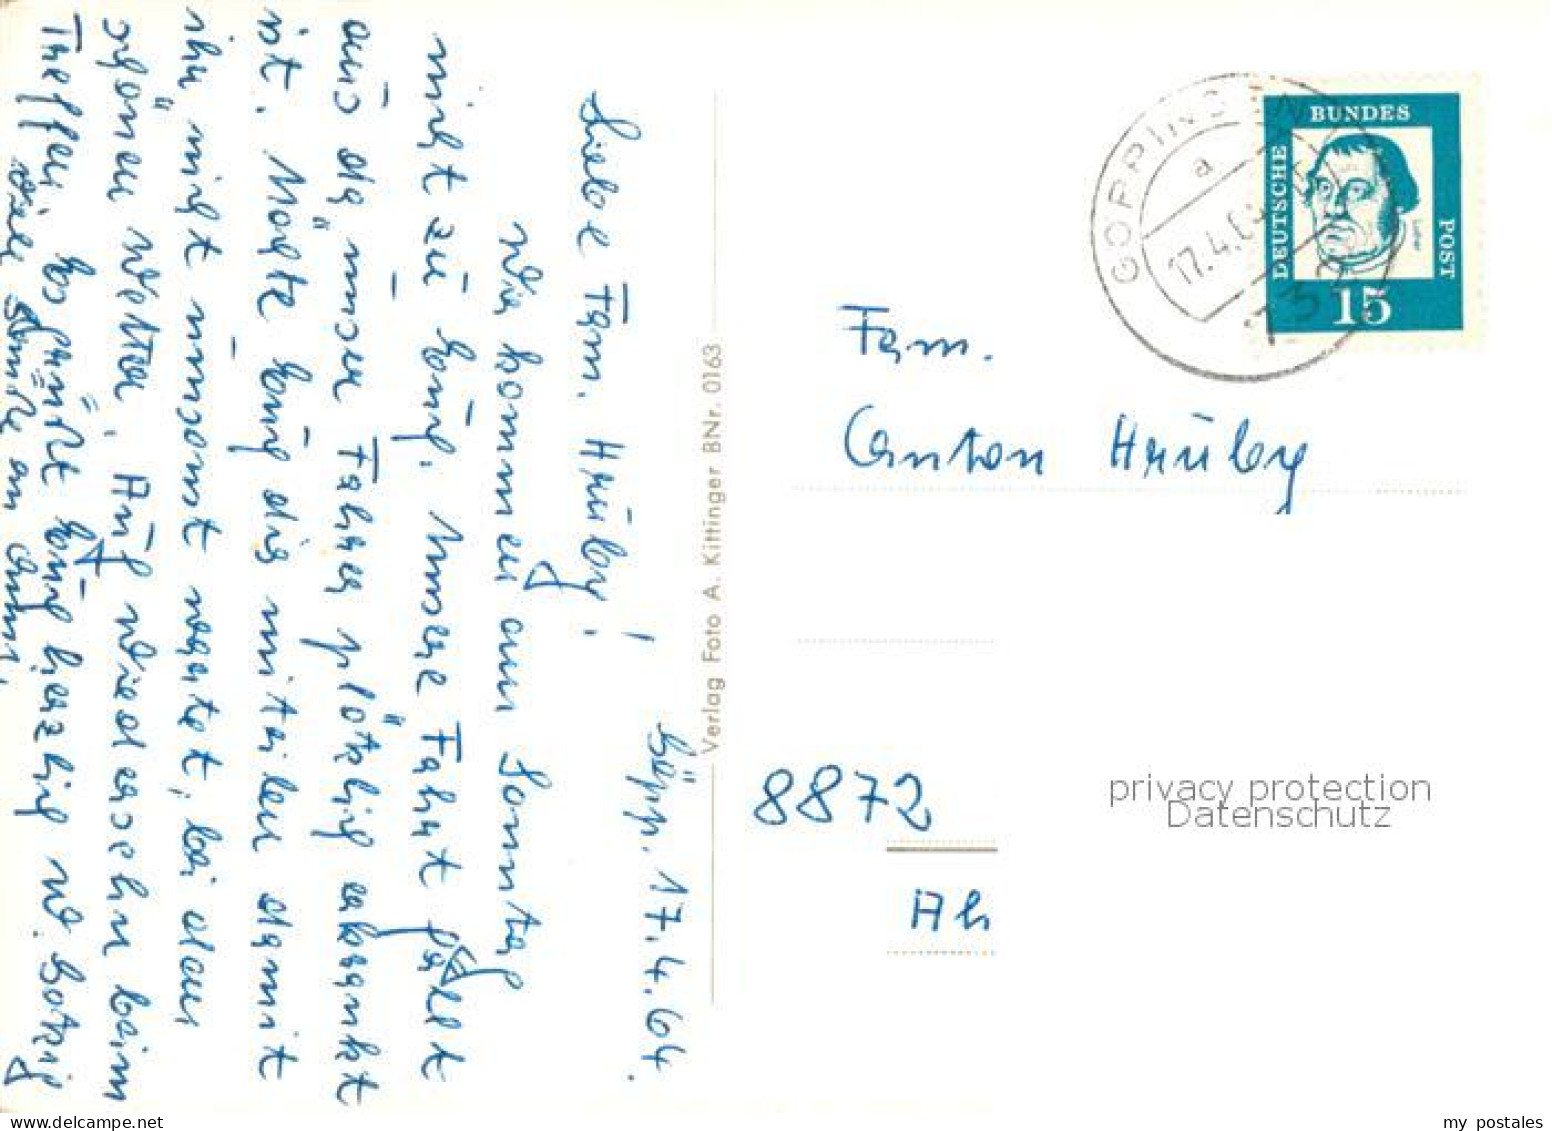 Göpp. 17.4.64.
Liebe Fam. Hruby!
Wir kommen am Sonntag
nicht zu Euch. Unsere Fahrt fällt
aus da unser Fahrer plötzlich erkrankt
ist. Möchte Euch dies mitteilen damit
ihr nicht umsonst wartet, bei dem
schönen Wetter. Auf Wiedersehn beim
Treffen. Es grüßt Euch herzlich
viele Grüße an
Verlag Foto A. Kittinger BNr. 0163
GÖPPINGEN
a
17.4.64
73
DEUTSCHE
BUNDES
POST
15
Fam.
Anton Hruby
8872
privacy protection
Datenschutz
my postales